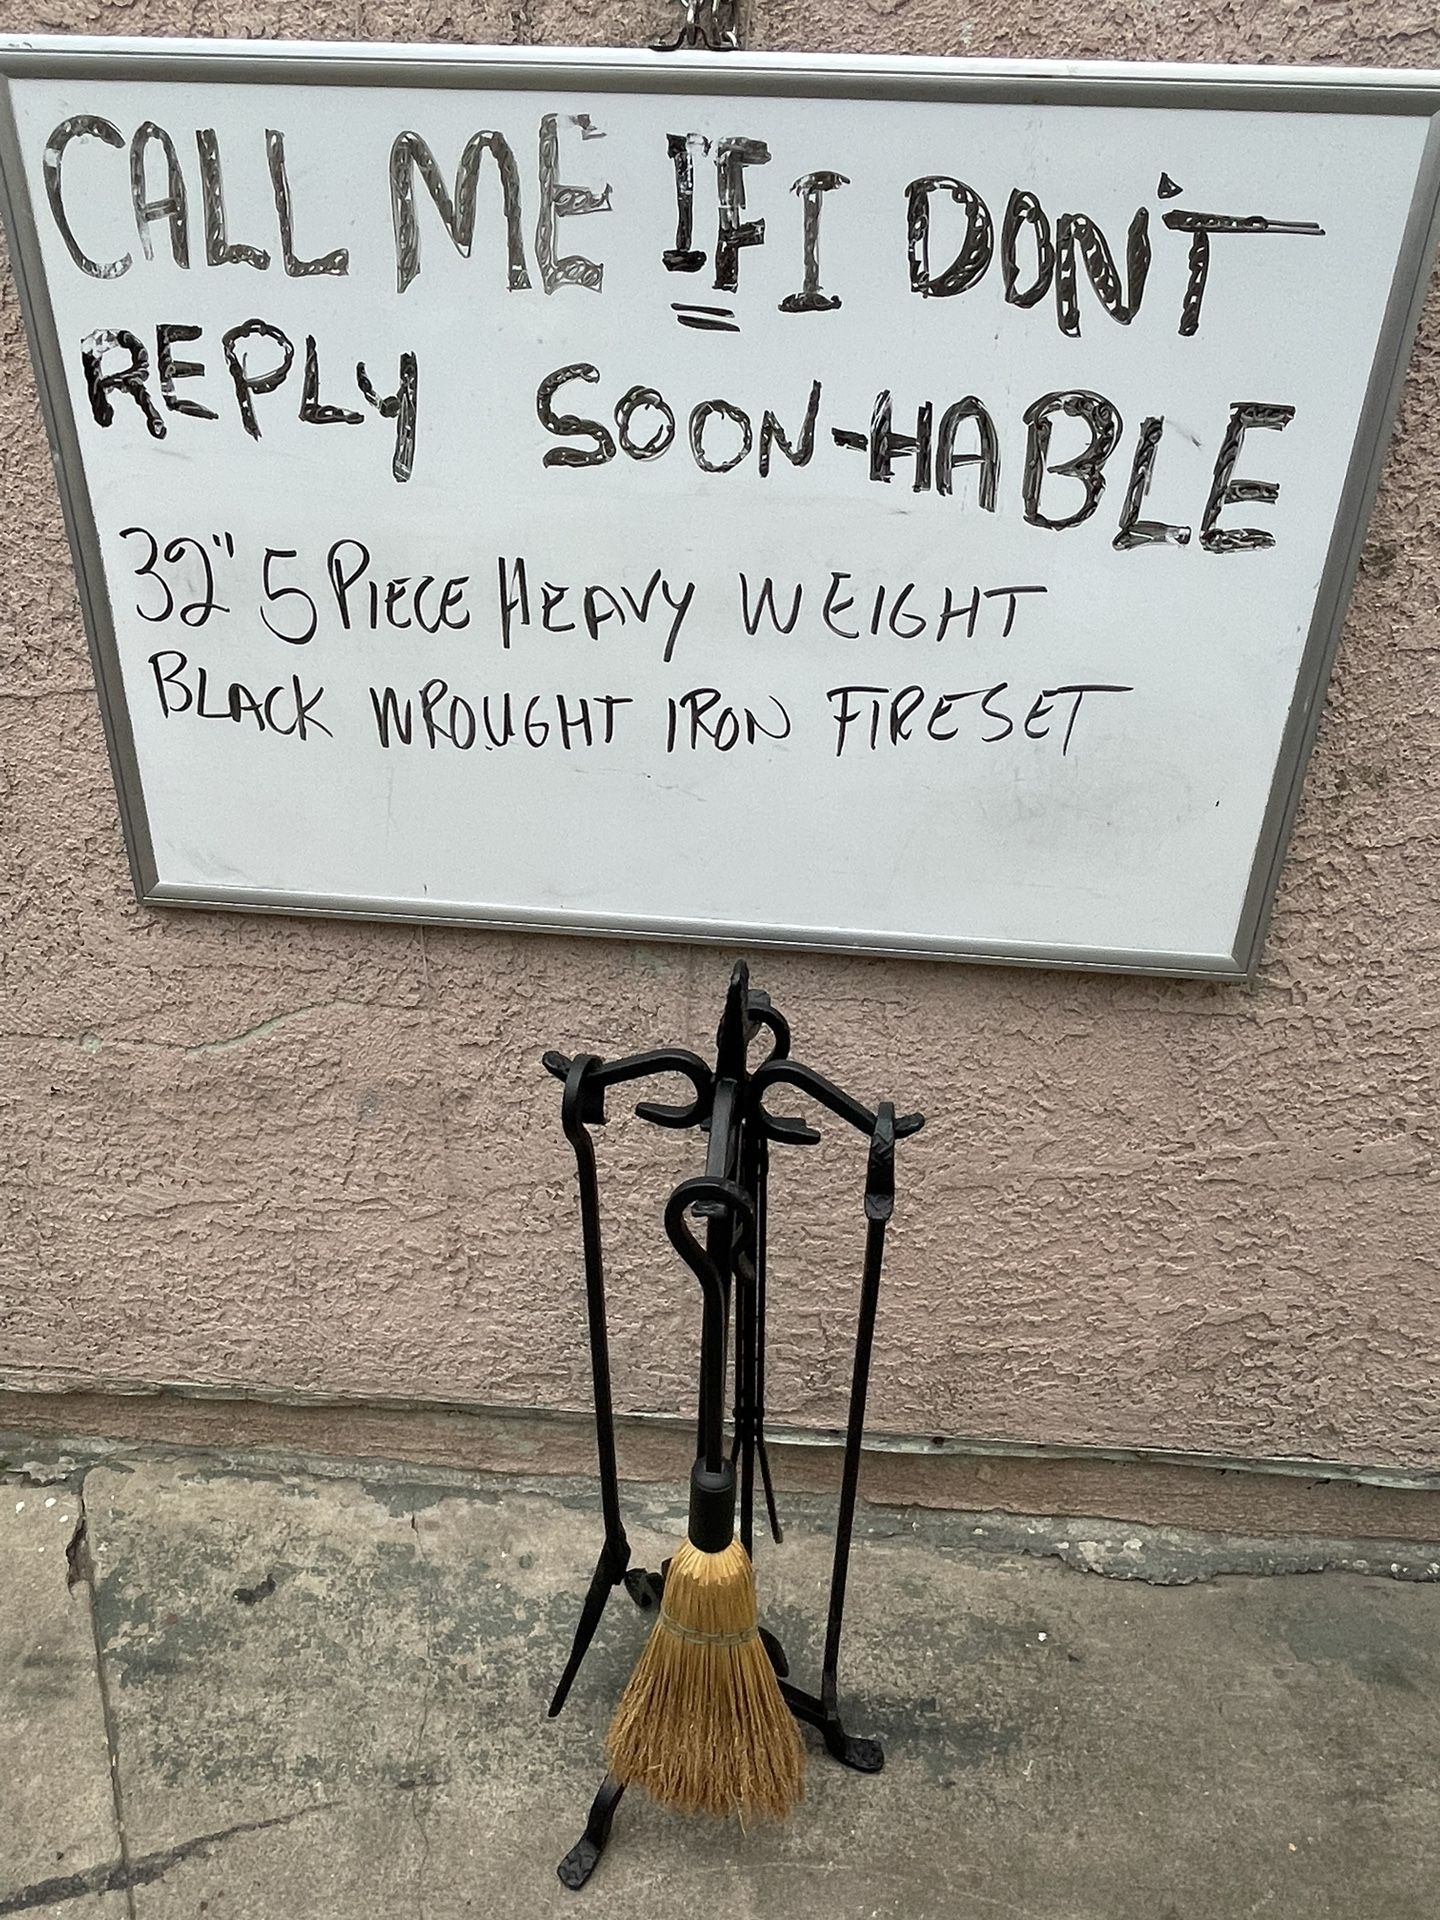 CALL ME IF I DON'T
REPLY SOON-HABLE
32" 5 PIECE HEAVY WEIGHT
BLACK WROUGHT IRON FIRESET